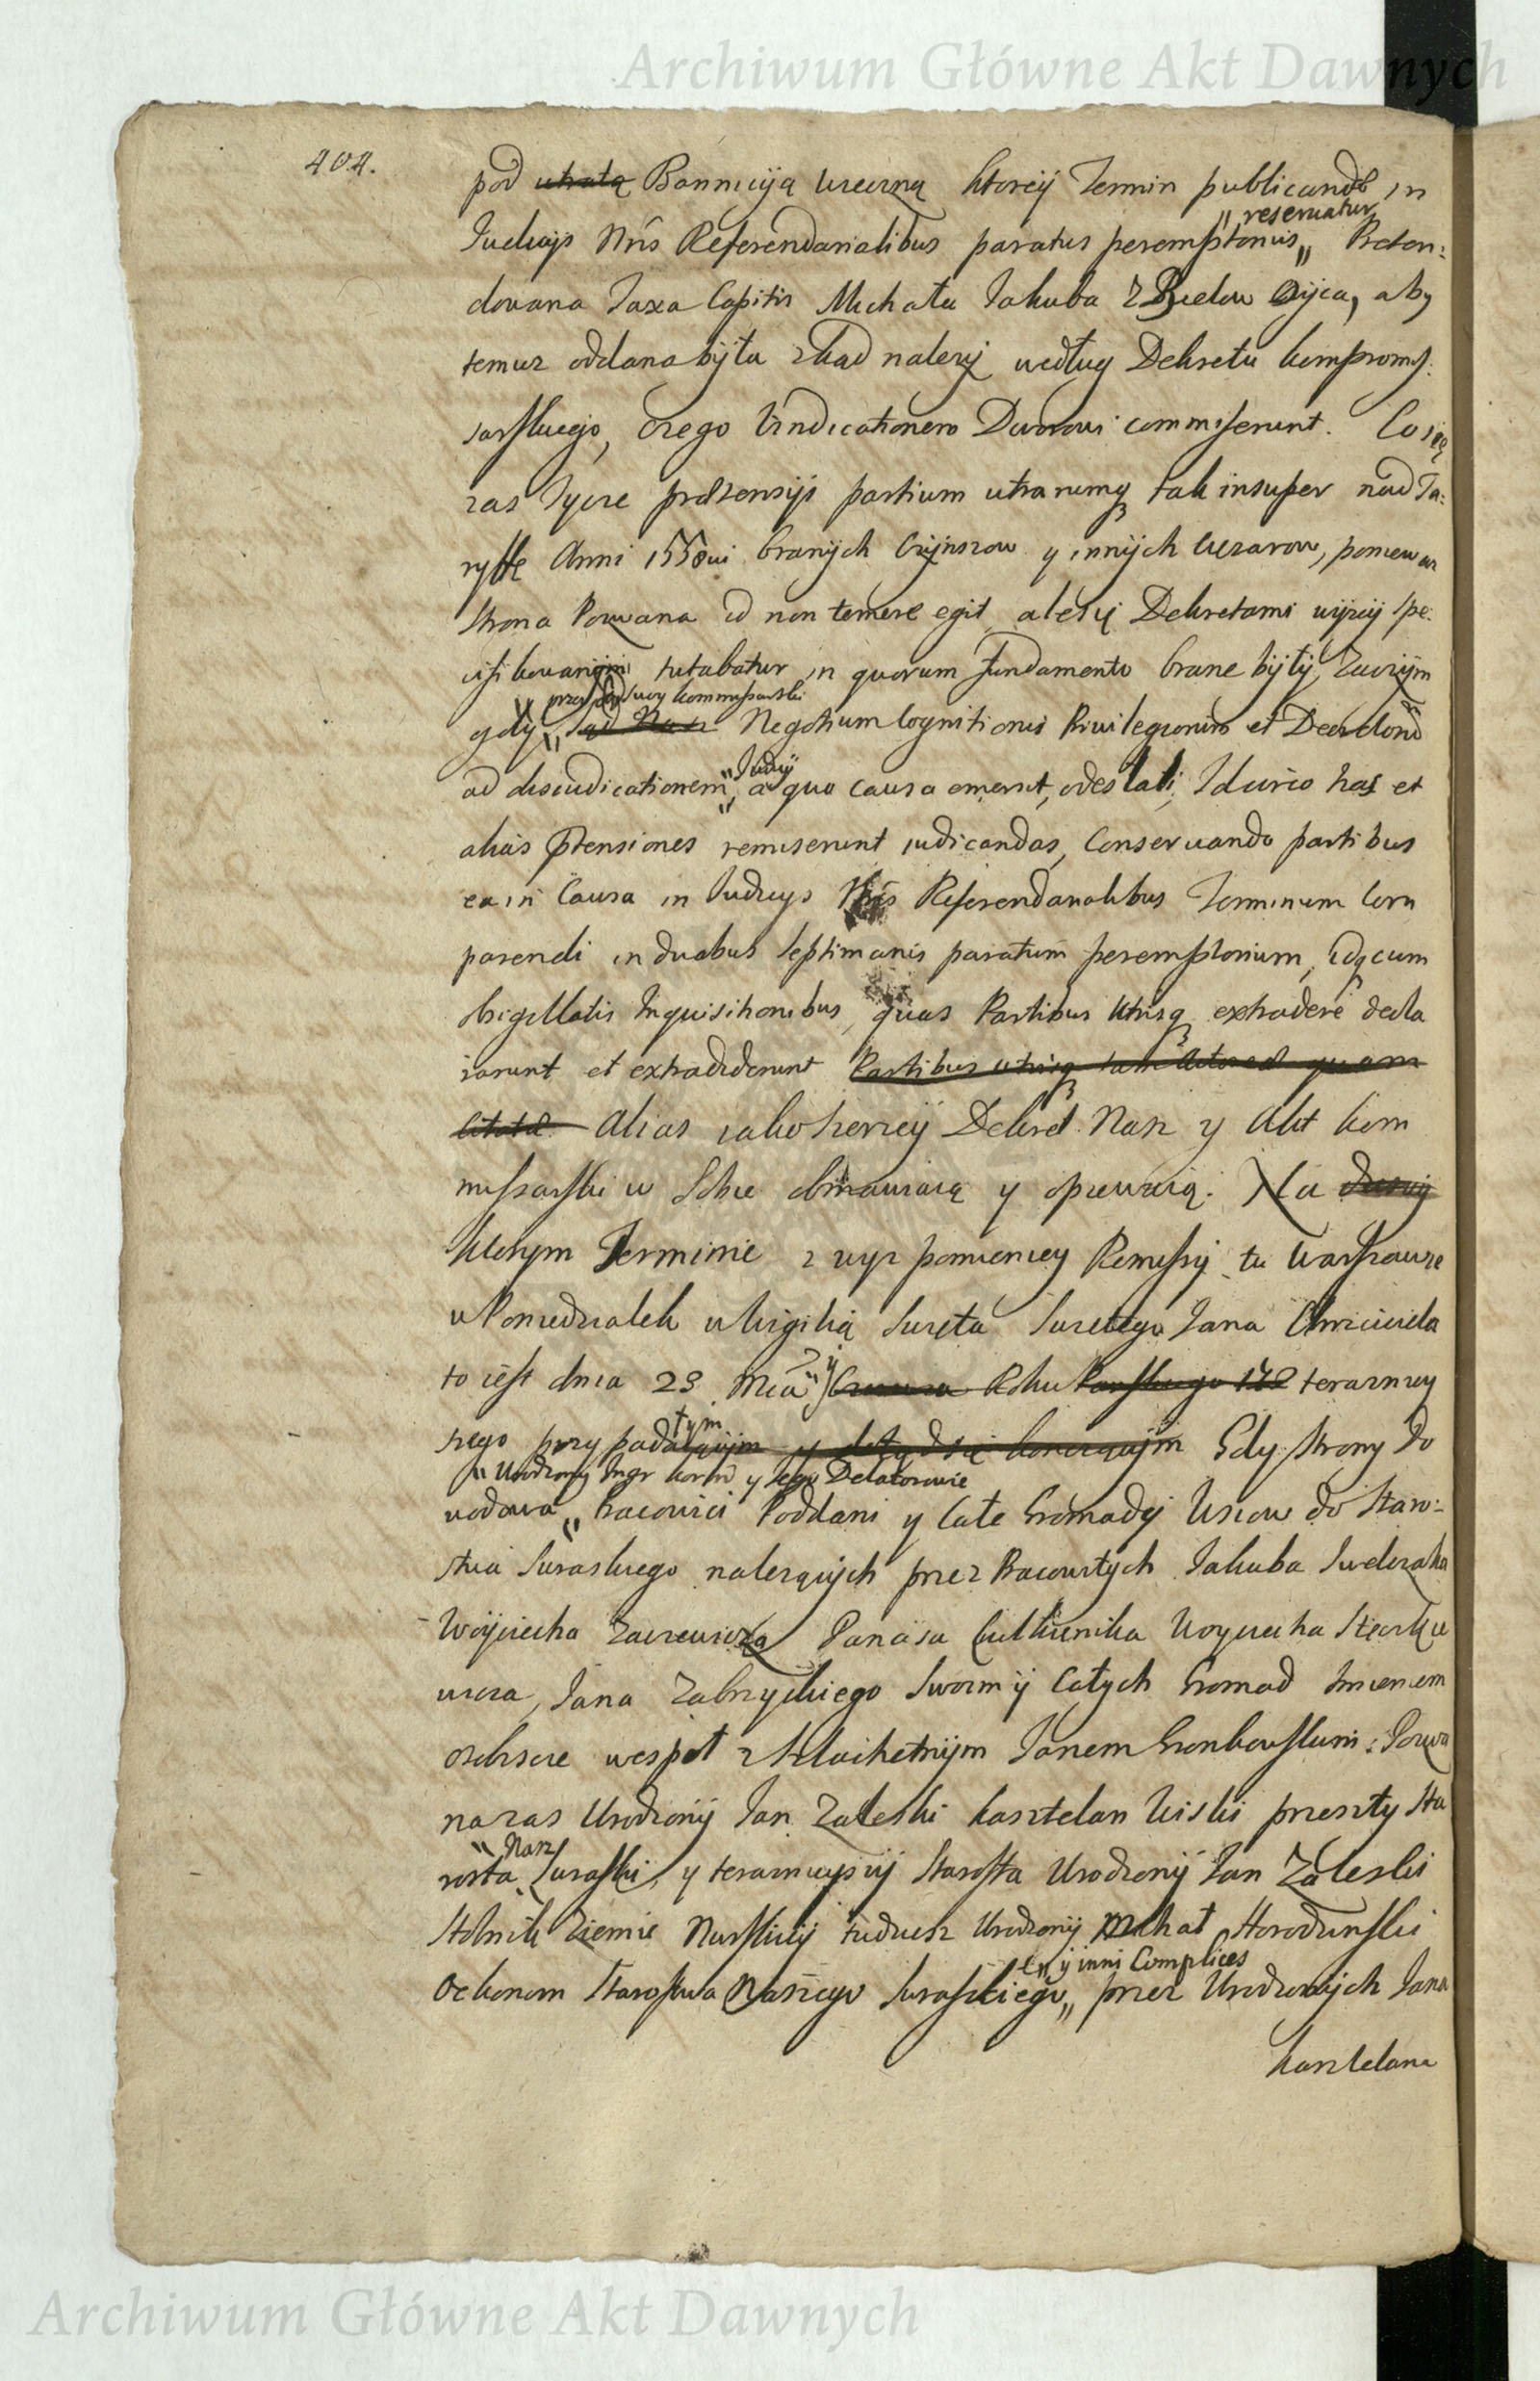 Archiwum Główne Akt Dawnych
404.
pod utratą Bannicyą wieczną ktorey Termin publicandæ in
reservatur
Iudicijs Nris Referendarialibus paratus peremptorius Preten:
dowana Taxa Capitis Michała Jakuba z Bielow Oyca, aby
temuz oddana była zkąd należy według Dekretu kompromis:
sarskiego, czego Vindicationem Dworowi commiserunt. Co się
zas tycze prætensyi partium utrarumq tak insuper nad Ta:
ryffę Anni 1558vi branych Czynszow y innych ciężarow, poniewaz
strona Pozwana id non temere egit ale są Dekretami wyżey spe:
cifikowanymi tutabatur in quorum fundamento brane były, Zaczym
przeszłowy kommissarski
gdy Sąd Nasz Negotium Cognitionis Privilegiorum et Decretorũ
Iudicij
ad diiudicationem, a quo causa emersit, odesłali, Idcirco has et
alias prtensiones remiserunt iudicandas, Conservando partibus
ea in Causa in Iudicijs Nris Referendarialibus Terminum Com
parendi in duabus Septimanis paratum peremptorium, idq cum
sbigillatis Inquisitionibus, quas Partibus Utrisq extradere decla
rarunt et extradiderunt Partibus utrisq tam Actoreæ quam
Citatæ Alias iako szerzey Dekret Nasz y Akt kom
missarski w Sobie obmawiaią y opiewaią. Na
ktorym Terminie z wyz pomienioney Remissyi tu w Warszawie
w Poniedziałek w Wigilią Swięta Swiętego Jana Chrzciciela
to iest dnia 23 Mca y Czerwca Roku Pańskiego 178 terazniey
tym
szego przypadaiącym y dotąd się kontynuiącym Gdy Strony Po
Urodzony Ingr kornũ y Iego Delatorowie
wodowa Pracowici Poddani y Całe Gromady Wsiow do Staro:
stwa Suraskiego nalezących przez Pracowitych Jakuba Swelczaka
Woyciecha Zaczewicza Panasa Woyciecha
wicza, Jana Zabrzyckiego Swoim y Całych Gromad Imieniem
osobiscie wespoł z Szlachetnym Janem Gronbowskim: Pozwa
na zas Urodzony Jan Zaleski kasztelan Wiski przeszły Sta
Nasz
rosta Suraski, y teraznieyszy Starosta Urodzony Jan Zaleski
Stolnik Ziemie Nurskiey tudziesz Urodzony Michał Horodzinski
y inni Complices
Oekonom Starostwa Naszego Suraskiego przez Urodzonych Jana
kasztelana
Archiwum Główne Akt Dawnych